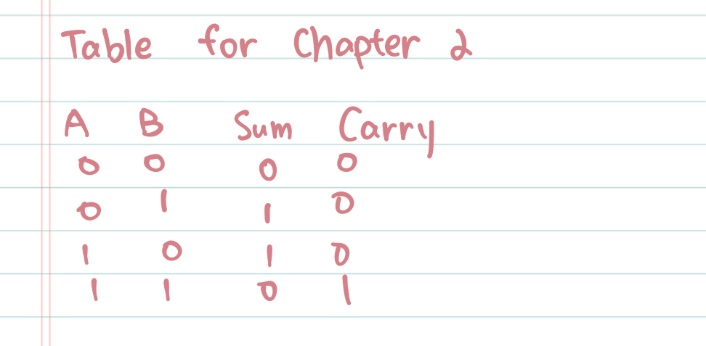 Table for Chapter 2
A B Sum Carry
0 0 0 0
0 1 1 0
1 0 1 0
1 1 0 1